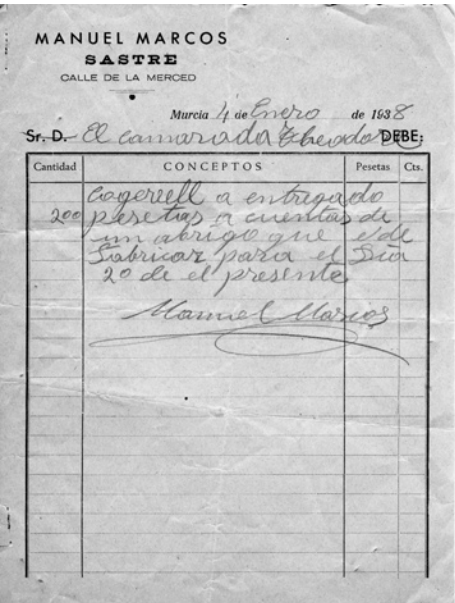 MANUEL MARCOS
SASTRE
CALLE DE LA MERCED
Murcia 4 de Enero de 1938
Sr. D. El camarada Theodore DEBE:
Cantidad CONCEPTOS Pesetas Cts.
Cogerell a entregado
200 pesetas a cuentas de
un abrigo que e de
Fabricar para el Dia
20 de el presente
Manuel Marcos